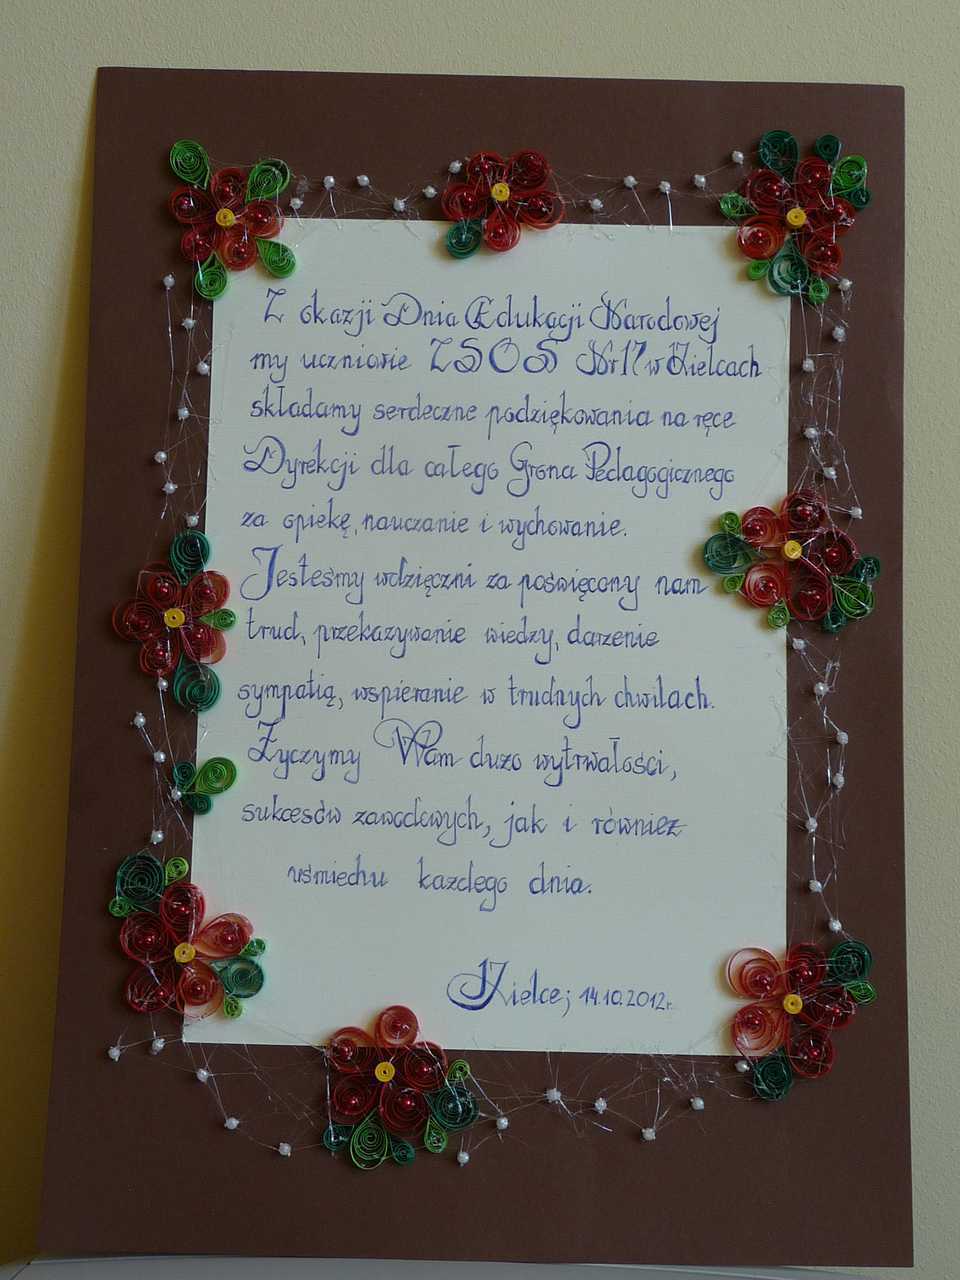 Z okazji Dnia Edukacji Narodowej
my uczniowie ZSOS Nr 17 w Kielcach
składamy serdeczne podziękowania na ręce
Dyrekcji dla całego Grona Pedagogicznego
za opiekę, nauczanie i wychowanie.
Jesteśmy wdzięczni za poświęcony nam
trud, przekazywanie wiedzy, darzenie
sympatią, wspieranie w trudnych chwilach.
Życzymy Wam dużo wytrwałości,
sukcesów zawodowych, jak i również
uśmiechu każdego dnia.
Kielce; 14.10.2012r.